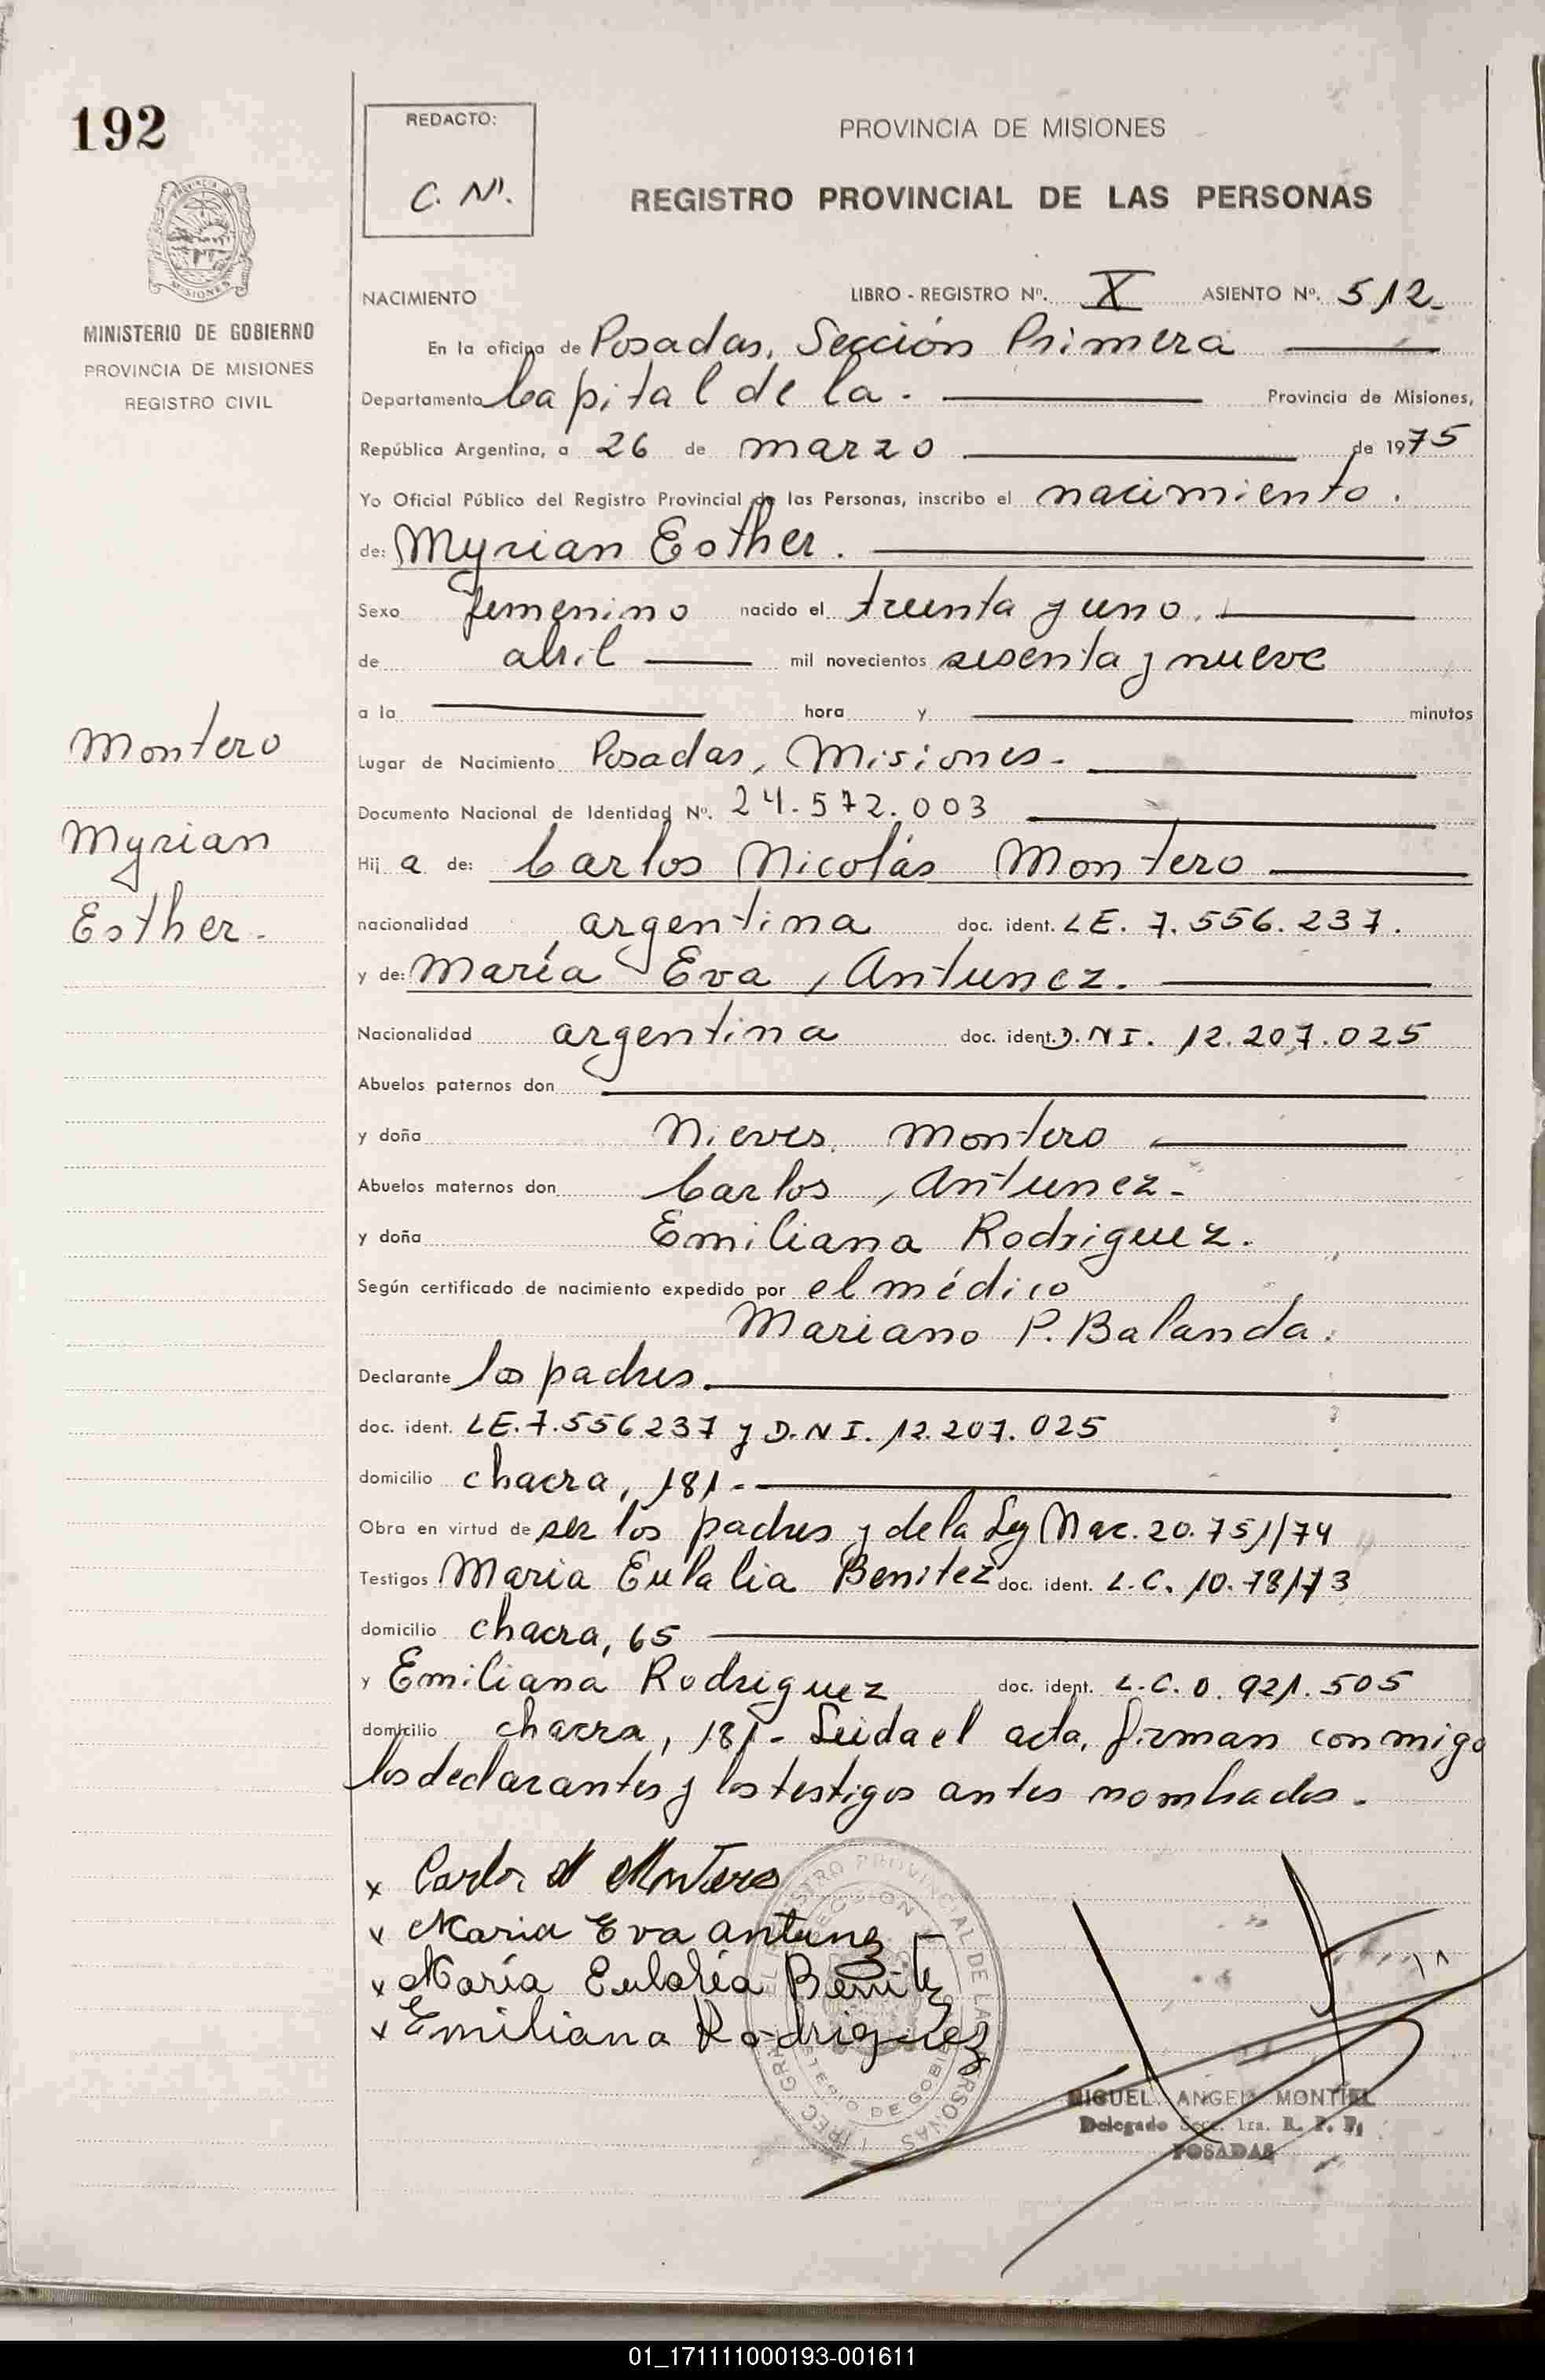 192
REDACTO:
C. N.
PROVINCIA DE MISIONES
REGISTRO PROVINCIAL DE LAS PERSONAS
MINISTERIO DE GOBIERNO
PROVINCIA DE MISIONES
REGISTRO CIVIL
NACIMIENTO LIBRO - REGISTRO Nº. X ASIENTO Nº. 512.
En la oficina de Posadas, Sección Primera
Departamento Capital de la. Provincia de Misiones,
República Argentina, a 26 de marzo de 1975
Yo Oficial Público del Registro Provincial de las Personas, inscribo el nacimiento.
de: Myrian Esther.
Sexo femenino nacido el treinta y uno.
de abril mil novecientos sesenta y nueve
a la hora y minutos
Montero
Lugar de Nacimiento Posadas, Misiones-
Documento Nacional de Identidad Nº. 24.572.003
Myrian
Hij a de: Carlos Nicolás Montero
Esther-
nacionalidad argentina doc. ident. LE. 7.556.237.
y de: María Eva, Antunez.
Nacionalidad argentina doc. ident. D.NI. 12.207.025
Abuelos paternos don
y doña Nieves Montero
Abuelos maternos don Carlos, Antunez-
y doña Emiliana Rodriguez.
Según certificado de nacimiento expedido por el médico
Mariano P. Balanda.
Declarante los padres.
doc. ident. LE.7.556.237 y D.NI. 12.207.025
domicilio chacra, 181.-
Obra en virtud de ser los padres y de la Ley Nac. 20.751/74
Testigos Maria Eulalia Benitez doc. ident. L.C. 10.781173
domicilio chacra, 65
y Emiliana Rodriguez doc. ident. L.C. 0.921.505
domicilio chacra, 181- Leida el acta, firman conmigo
los declarantes y los testigos antes nombrados.
x Carlos N Montero
x Maria Eva antunez
x María Eulalia Benitez
x Emiliana Rodriguez
MIGUEL ANGEL MONTIEL
Delegado Secc. 1ra. R. P. P.
POSADAS
01_171111000193-001611